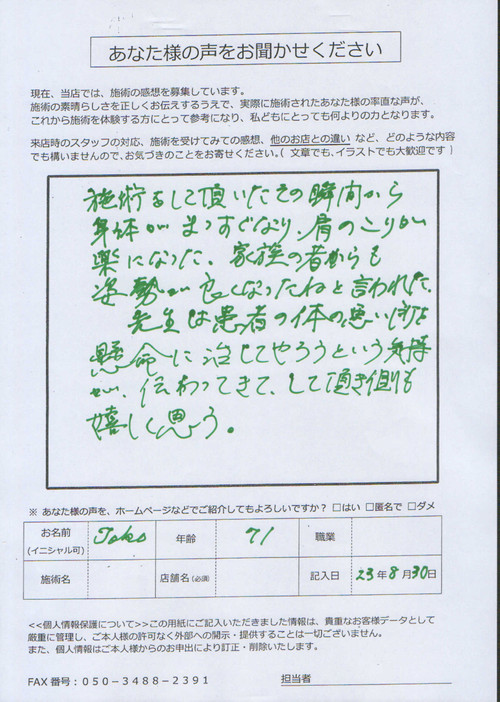 あなた様の声をお聞かせください
現在、当店では、施術の感想を募集しています。
施術の素晴らしさを正しくお伝えするうえで、実際に施術されたあなた様の率直な声が、
これから施術を体験する方にとって参考になり、私どもにとっても何よりの力となります。
来店時のスタッフの対応、施術を受けてみての感想、他のお店との違い など、どのような内容
でも構いませんので、お気づきのことをお寄せください。( 文章でも、イラストでも大歓迎です )
施術をして頂いたその瞬間から
身体がまっすぐなり、肩のこりが
楽になった。家族の者からも
姿勢が良くなったねと言われた、
先生は患者の体の悪い所を
懸命に治してやろうという気持
が、伝わってきて、して頂き側も
嬉しく思う。
※ あなた様の声を、ホームページなどでご紹介してもよろしいですか? □はい □匿名で □ダメ
お名前 (イニシャル可) Toko 年齢 71 職業
施術名 店舗名(必須) 記入日 23年8月30日
<<個人情報保護について>>この用紙にご記入いただきました情報は、貴重なお客様データとして
厳重に管理し、ご本人様の許可なく外部への開示・提供することは一切ございません。
また、個人情報はご本人様からのお申出により訂正・削除いたします。
FAX 番号：050-3488-2391 担当者